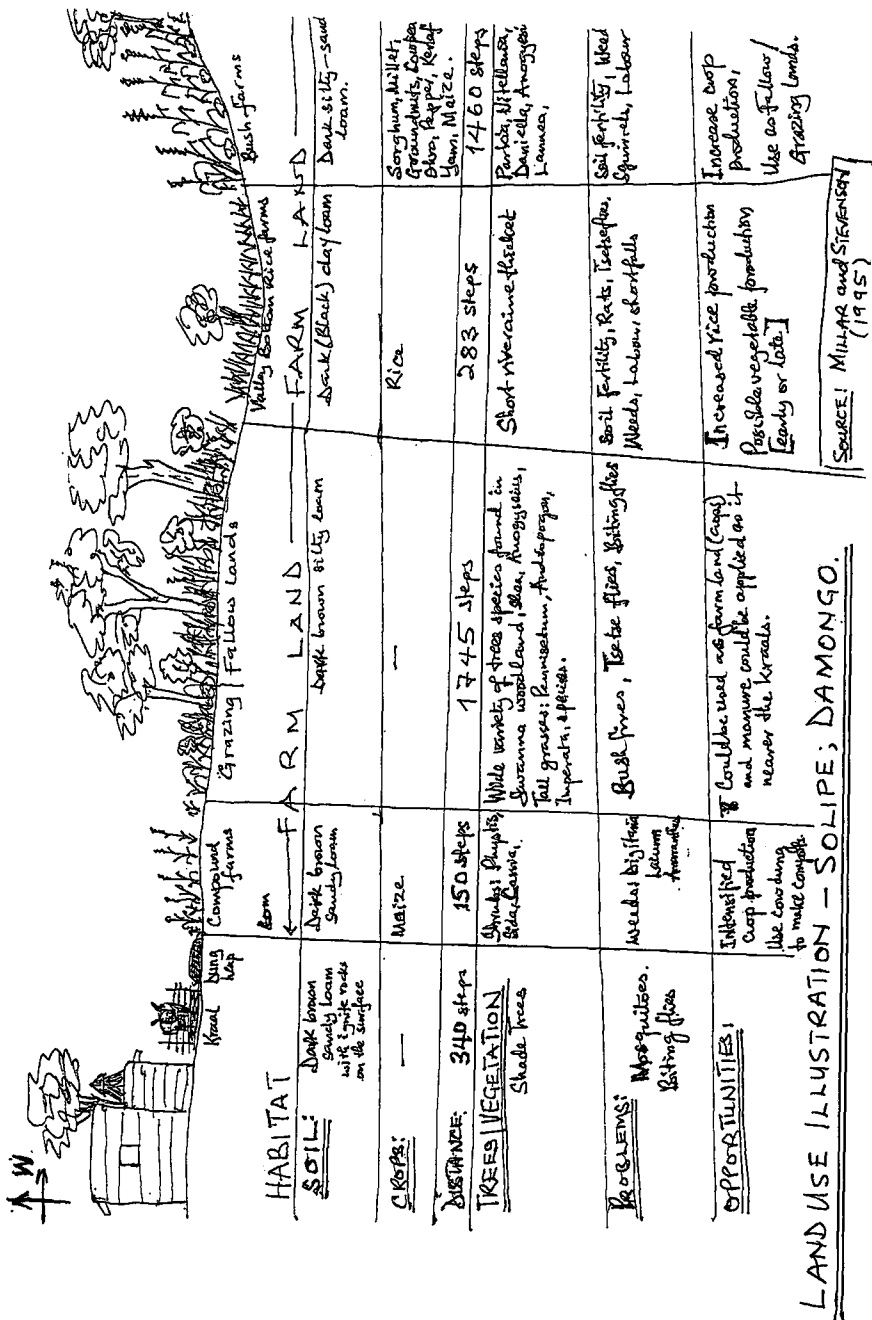 W
Kraal
Dung
heap
Compound
farms
Grazing | Fallow Lands
Valley Bottom Rice farms
Bush farms
HABITAT
FARM LAND
FARM LAND
SOIL:
Dark brown
sandy loam
with ignite rocks
on the surface
Dark brown
sandy loam
Dark brown silty loam
Dark (Black) clay loam
Dark silty-sand
loam.
CROPS:
—
Maize
—
Rice
Sorghum, Millet,
Groundnuts, Cowpea
Okra, Pepper, Kenaf
Yam, Maize.
DISTANCE:
340 steps
150 steps
1745 steps
283 steps
1460 steps
TREES | VEGETATION
Shade Trees
Shrubs: Phystis,
Sida, Cassia,
Wide variety of trees species found in
Savanna woodland, Shea, Anogyssius,
Tall grasses: Pennisetum, Andropogon,
Imperata, species.
Short riveraine thicket
Parkia, Nitellaria,
Daniella, Anogyssi
Lannea,
PROBLEMS:
Mosquitoes.
Biting flies
Weeds: Digitaria
Bush fires, Tsetse flies, Biting flies
Soil Fertility, Rats, Tsetseflies.
Weeds, Labour, shortfalls
Soil fertility, Weed
Squirrels, Labour
OPPORTUNITIES:
Intensified
crop production
Use cowdung
to make compost
Could be used as farm land (crops)
and manure could be applied as it
nearer the kraals.
Increased rice production
Possible vegetable production
[early or late]
Increase crop
production,
Use as Fallow /
Grazing Lands.
SOURCE: MILLAR and STEVENSON
(1995)
LAND USE ILLUSTRATION - SOLIPE; DAMONGO.